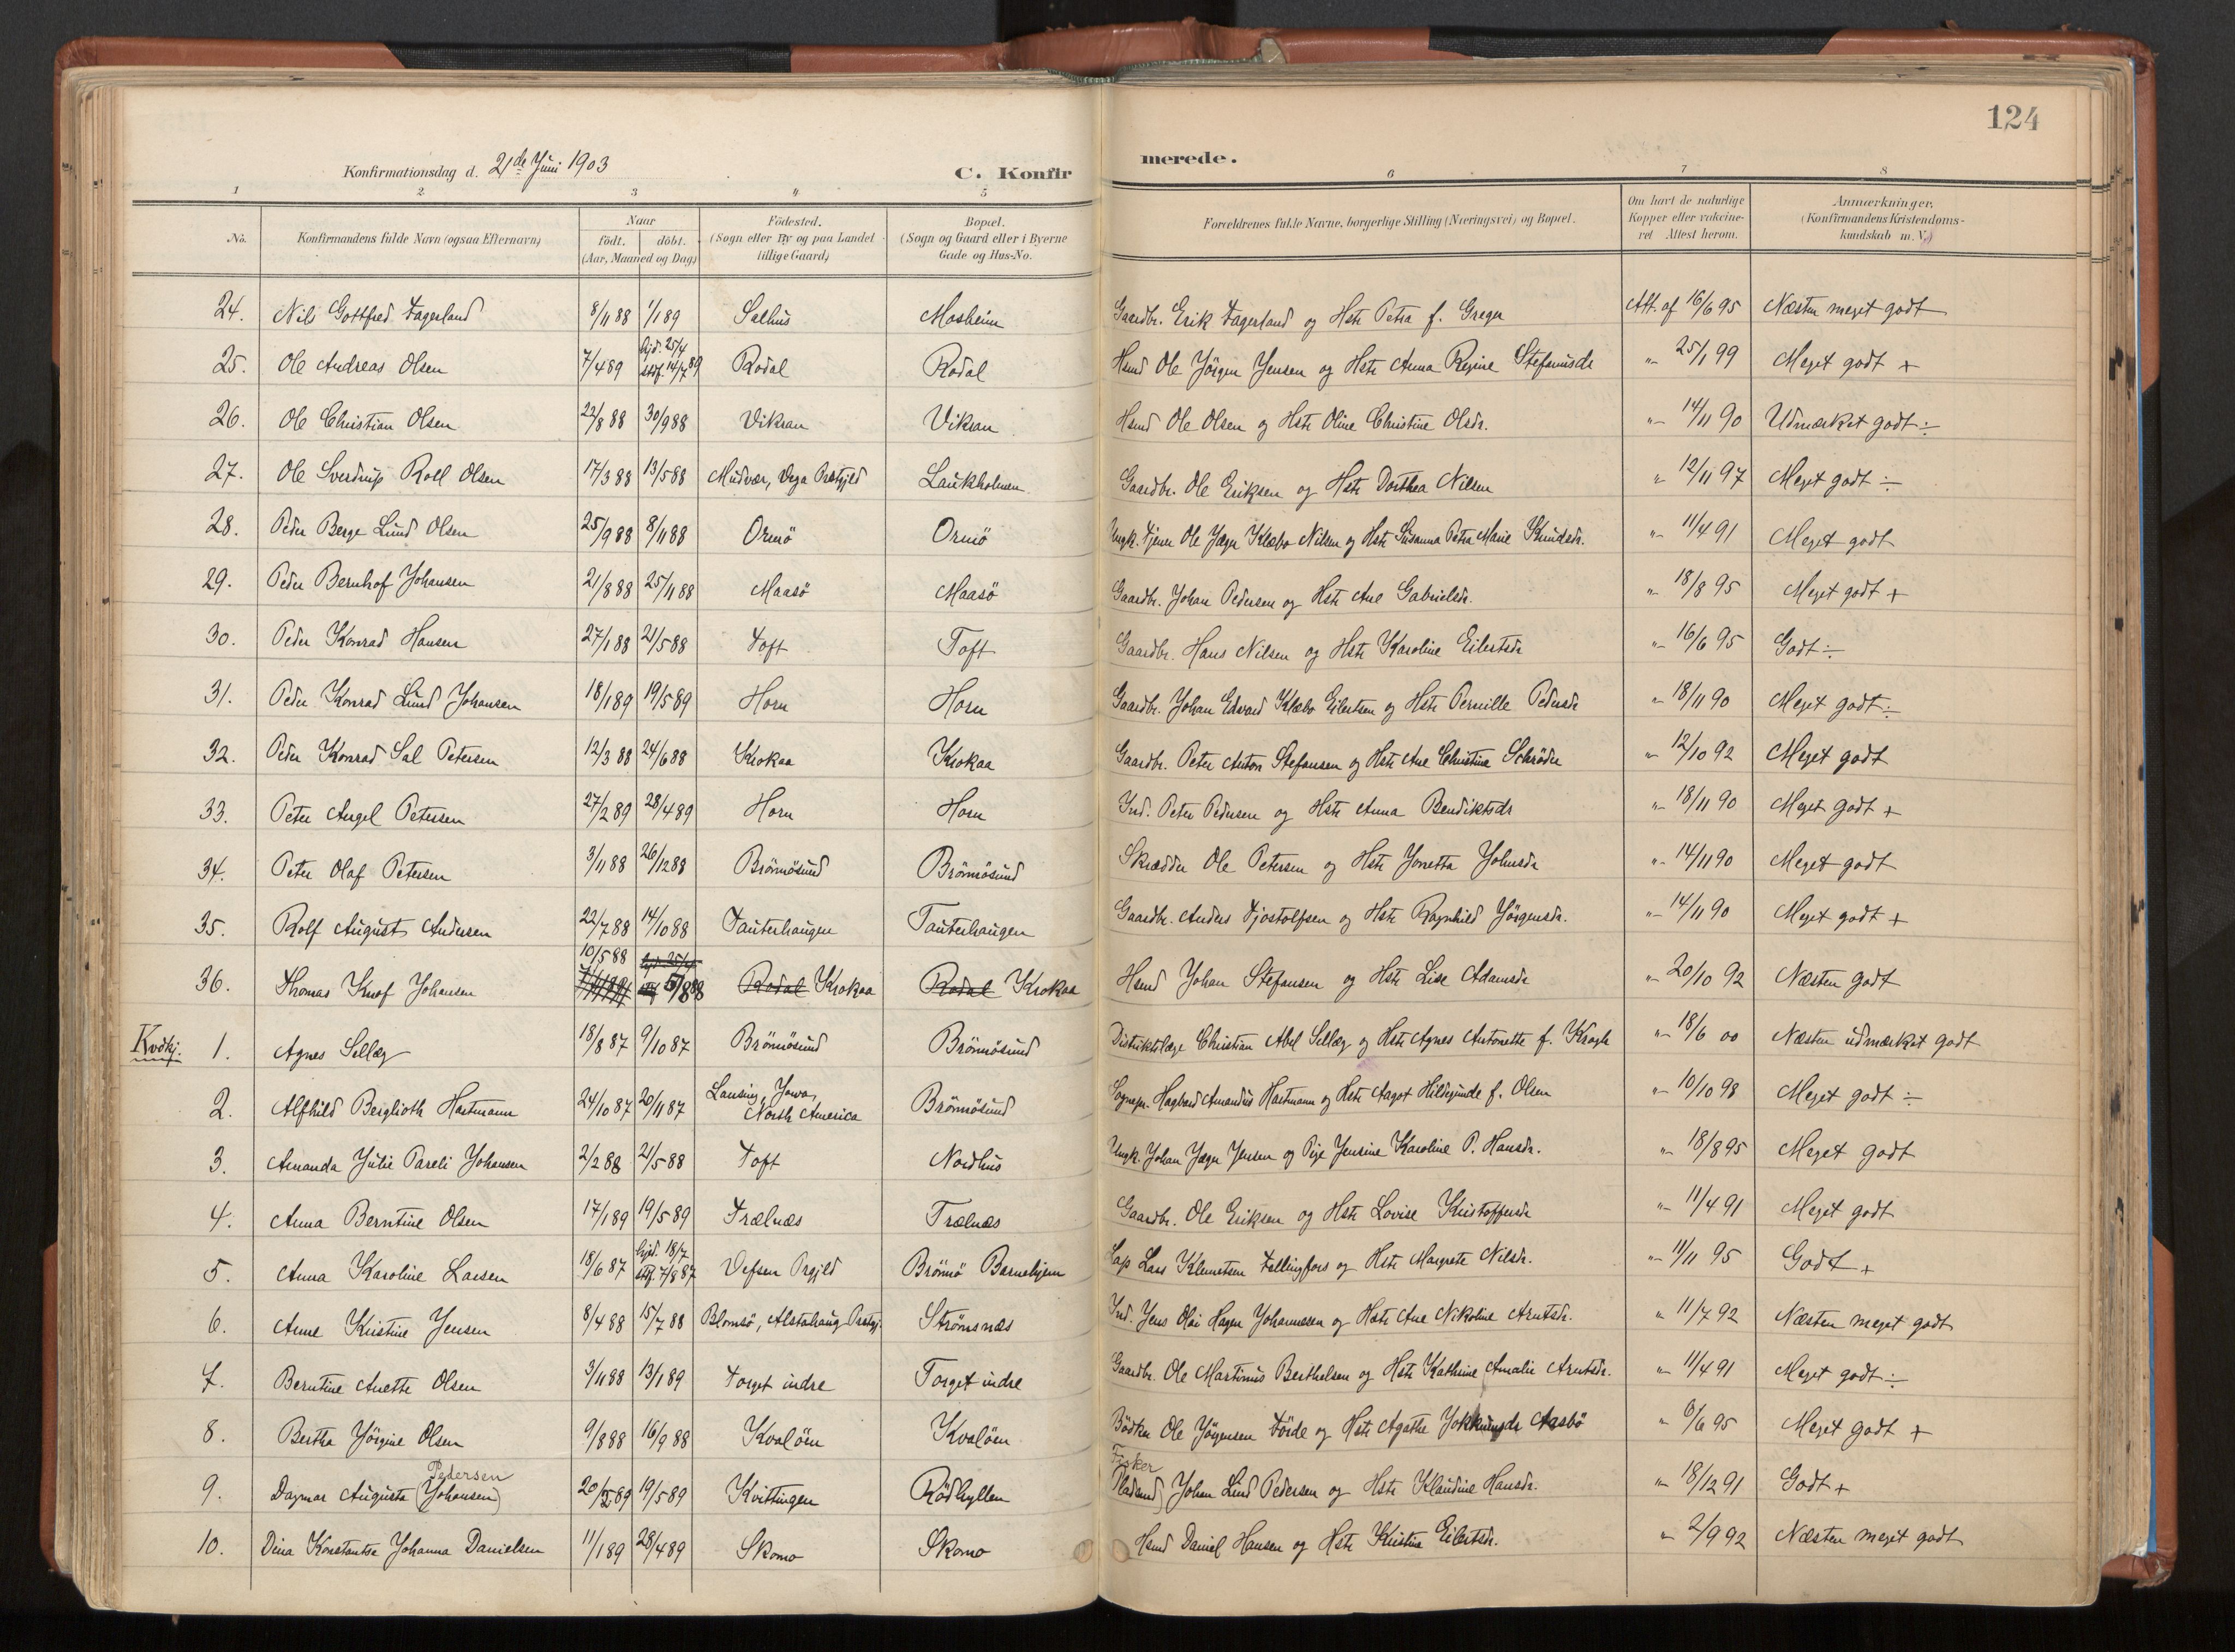 124
Konfirmationsdag d. 21de Juni 1903
C. Konfirmerede.
1 2 3 4 5 6 7 8
No. | Konfirmandens fulde Navn (ogsaa Efternavn) | Naar födt. döbt. (Aar, Maaned og Dag) | Födested. (Sogn eller By og paa Landet tillige Gaard) | Bopæl. (Sogn og Gaard eller i Byerne Gade og Hus-No. | Forældrenes fulde Navne, borgerlige Stilling (Næringsvei) og Bopæl. | Om havt de naturlige Kopper eller vakcineret Attest herom. | Anmærkninger. (Konfirmandens Kristendomskundskab m. V.)
24. Nils Gottfred Fagerland 8/11 88 1/1 89 Salhus Mosheim Gaardbr. Erik Fagerland og Hstr Petra f. Greger Att. af 16/6 95 Næsten meget godt
25. Ole Andreas Olsen 7/4 89 hjd. 25/4 stdf. 14/7 89 Rodal Rodal Hsmd Ole Jörgen Jensen og Hstr Anna Regine Stefanusdr "- 25/1 99 Meget godt +
26. Ole Christian Olsen 22/8 88 30/9 88 Vikran Vikran Hsmd Ole Olsen og Hstr Oline Christine Olsdr. "- 14/11 90 Udmærket godt ÷
27. Ole Sverdrup Roll Olsen 17/3 88 13/5 88 Mudvær, Vega Prstgjld Laukholmen Gaardbr. Ole Eriksen og Hstr Dorthea Nilsen " 12/11 97 Meget godt ÷
28. Peder Berge Lund Olsen 25/9 88 8/11 88 Ormö Ormö Ungk. Tjener Ole Jæger Klæbo Nilsen og Hstr Susanna Petra Marie Knudsdr. "- 11/4 91 Meget godt
29. Peder Bernhof Johansen 21/8 88 25/11 88 Maasö Maasö Gaardbr. Johan Pedersen og Hstr Ane Gabrielsdr. "- 18/8 95 Meget godt +
30. Peder Konrad Hansen 27/1 88 21/5 88 Toft Toft Gaardbr. Hans Nilsen og Hstr Karoline Eilertsdr "- 16/6 95 Godt ÷
31. Peder Konrad Lund Johansen 18/1 89 19/5 89 Horn Horn Gaardbr. Johan Edvard Klæbo Eilertsen og Hstr Pernille Pedersdr "- 18/11 90 Meget godt ÷
32. Peder Konrad Sal Petersen 12/3 88 24/6 88 Krokaa Krokaa Gaardbr. Peter Anton Stefansen og Hstr Ane Christine Schröder "- 12/10 92 Meget godt
33. Peter Angel Petersen 27/2 89 28/4 89 Horn Horn Ind. Peter Pedersen og Hstr Anna Bendiktsdr "- 18/11 90 Meget godt +
34. Peter Olaf Petersen 3/11 88 26/12 88 Brönnösund Brönnösund Skrædder Ole Petersen og Hstr Jonetta Johnsdr "- 14/11 90 Meget godt
35. Rolf August Andersen 22/7 88 14/10 88 Tauterhaugen Tauterhaugen Gaardbr. Anders Fjostolfsen og Hstr Ragnhild Jörgensdr. "- 14/11 90 Meget godt +
36. Thomas Knof Johansen 10/5 88 5/8 88 Rodal Krokaa Rodal Krokaa Hsmd Johan Stefansen og Hstr Lise Adamsdr "- 20/10 92 Næsten godt
Kvdkj. 1. Agnes Selläg 18/8 87 9/10 87 Brönnösund Brönnösund Distriktslæge Christian Abel Selläg og Hstr Agnes Antonette f. Kragh "- 18/6 00 Næsten udmærket godt
2. Alfhild Bergliotb Hartmann 24/10 87 20/11 87 Lansing, Jowa, North America Brönnösund Sognepr. Hagbard Amandus Hartmann og Hstr Aagot Hildegunde f. Olsen "- 10/10 98 Meget godt ÷
3. Amanda Julie Pareli Johansen 2/2 88 21/5 88 Toft Nordhus Ungk. Johan Jæger Jensen og Pige Jensine Karoline P. Hansdr. "- 18/8 95 Meget godt
4. Anna Berntine Olsen 17/1 89 19/5 89 Trælnæs Trælnæs Gaardbr. Ole Eriksen og Hstr Lovise Kristoffersdr "- 11/4 91 Meget godt
5. Anna Karoline Larsen 18/6 87 hjd. 18/7 stdf. 7/8 87 Vefsen Prgjld Brönnö Barnehjem Lap Lars Klemetsen Fellingfors og Hstr Margrete Nilsdr. "- 11/11 95 Godt +
6. Anne Kristine Jensen 8/4 88 15/7 88 Blomsö, Alstahaug Prstgj. Strömsnæs Ind. Jens Olai Hagen Johannesen og Hstr Ane Nikoline Arntsdr. " 11/7 92 Næsten meget godt
7. Berntine Anette Olsen 3/11 88 13/1 89 Torget indre Torget indre Gaardbr. Ole Martinus Berthelsen og Hstr Kathrine Amalie Arntsdr. " 11/4 91 Meget godt ÷
8. Bertha Jörgine Olsen 9/8 88 16/9 88 Kvalöen Kvalöen Bödker Ole Jörgensen Förde og Hstr Agathe Aasbö " 6/6 95 Meget godt +
9. Dagmar Augusta (Johansen) Pedersen 20/2 89 19/5 89 Kvittingen Rödhyllen Fisker Pladsmd) Johan Lind Pedersen og Hstr Klaudine Hansdr. "- 18/12 91 Godt +
10. Dina Konstantse Johanna Danielsen 11/1 89 28/4 89 Skomo Skomo Hsmd Daniel Hansen og Hstr Kristine Eilertsdr. "- 2/9 92 Næsten meget godt